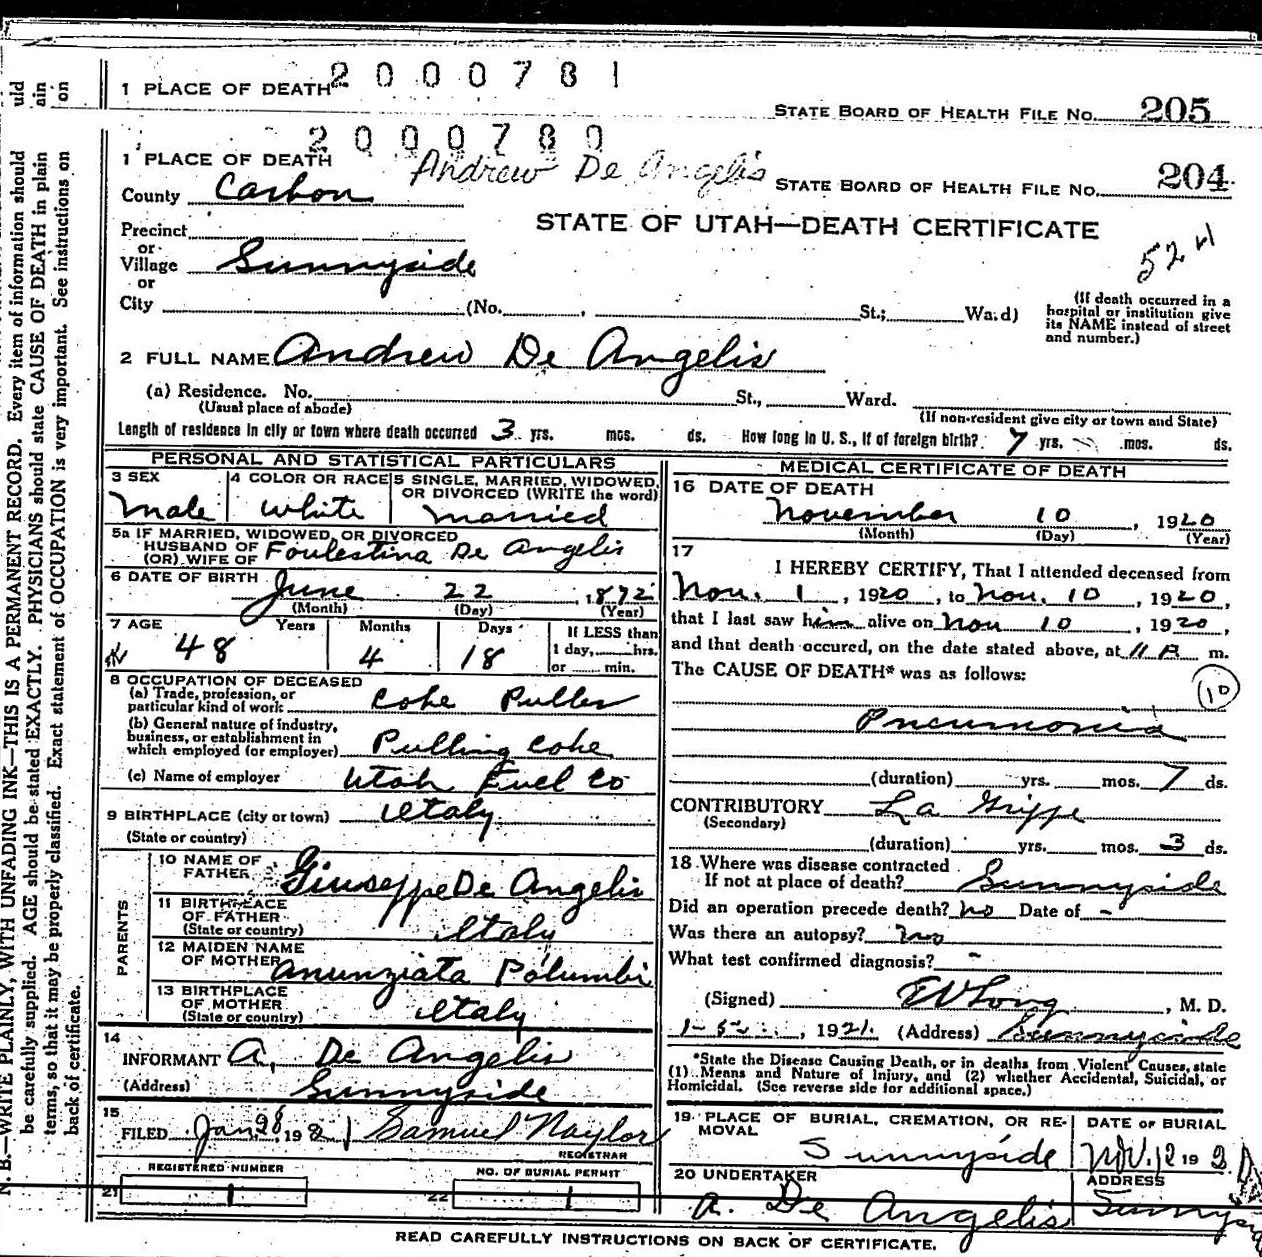 2000781
1 PLACE OF DEATH
STATE BOARD OF HEALTH FILE NO. 205
2000780
1 PLACE OF DEATH
Andrew De Angelis
STATE BOARD OF HEALTH FILE NO. 204
County Carbon
STATE OF UTAH—DEATH CERTIFICATE
Precinct
or
Village Sunnyside
or
City (No. , St.; Ward)
(If death occurred in a
hospital or institution give
its NAME instead of street
and number.)
2 FULL NAME Andrew De Angelis
(a) Residence. No. St., Ward.
(Usual place of abode)
(If non-resident give city or town and State)
Length of residence in city or town where death occurred 3 yrs. mos. ds. How long in U. S., if of foreign birth? 7 yrs. mos. ds.
PERSONAL AND STATISTICAL PARTICULARS
3 SEX
Male
4 COLOR OR RACE
White
5 SINGLE, MARRIED, WIDOWED,
OR DIVORCED (WRITE the word)
Married
5a IF MARRIED, WIDOWED, OR DIVORCED
HUSBAND OF
(OR) WIFE OF Foulestina De Angelis
6 DATE OF BIRTH June 22, 1872
(Month) (Day) (Year)
7 AGE Years Months Days
48 4 18
If LESS than
1 day, hrs.
or min.
8 OCCUPATION OF DECEASED
(a) Trade, profession, or
particular kind of work Coke Puller
(b) General nature of industry,
business, or establishment in
which employed (or employer) Pulling Coke
(c) Name of employer Utah Fuel Co
9 BIRTHPLACE (city or town) Italy
(State or country)
PARENTS
10 NAME OF
FATHER Giuseppe De Angelis
11 BIRTHPLACE
OF FATHER
(State or country) Italy
12 MAIDEN NAME
OF MOTHER Anunziata Polumbi
13 BIRTHPLACE
OF MOTHER
(State or country) Italy
14
INFORMANT A. De Angelis
(Address) Sunnyside
15
FILED Jan 28 192 1 Samuel Naylor
REGISTRAR
REGISTERED NUMBER
NO. OF BURIAL PERMIT
21
22
MEDICAL CERTIFICATE OF DEATH
16 DATE OF DEATH
November 10, 1920
(Month) (Day) (Year)
17
I HEREBY CERTIFY, That I attended deceased from
Nov. 1, 1920, to Nov. 10, 1920,
that I last saw him alive on Nov 10, 1920,
and that death occured, on the date stated above, at 11 A m.
The CAUSE OF DEATH* was as follows:
10
Pneumonia
(duration) yrs. mos. 7 ds.
CONTRIBUTORY La Grippe
(Secondary)
(duration) yrs. mos. 3 ds.
18 Where was disease contracted
If not at place of death? Sunnyside
Did an operation precede death? no Date of -
Was there an autopsy? no
What test confirmed diagnosis? -
(Signed) E V Long, M. D.
1-5, 1921. (Address) Sunnyside
*State the Disease Causing Death, or in deaths from Violent Causes, state
(1) Means and Nature of Injury, and (2) whether Accidental, Suicidal, or
Homicidal. (See reverse side for additional space.)
19 PLACE OF BURIAL, CREMATION, OR RE-
MOVAL
Sunnyside
DATE OF BURIAL
Nov. 12 19 2
20 UNDERTAKER
A. De Angelis
ADDRESS
READ CAREFULLY INSTRUCTIONS ON BACK OF CERTIFICATE.
N. B.—WRITE PLAINLY, WITH UNFADING INK—THIS IS A PERMANENT RECORD. Every item of information should
be carefully supplied. AGE should be stated EXACTLY. PHYSICIANS should state CAUSE OF DEATH in plain
terms, so that it may be properly classified. Exact statement of OCCUPATION is very important. See instructions on
back of certificate.
uld
ain
on